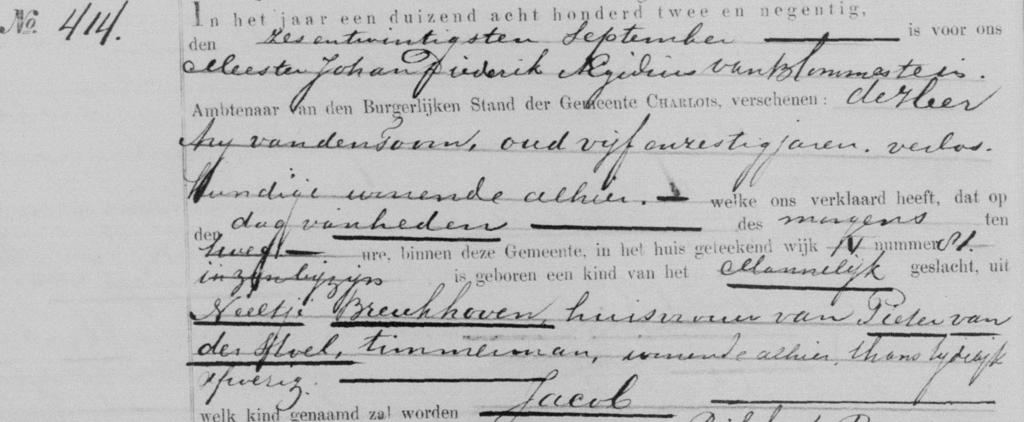 No. 414.
In het jaar een duizend acht honderd twee en negentig,
den zesentwintigsten September is voor ons
Meester Johan Frederik Aegidius van Blommestein.
Ambtenaar van den Burgerlijken Stand der Gemeente CHARLOIS, verschenen: de Heer
Ary van den Toorn, oud vijf en zestig jaren. verlos-
kundige wonende alhier. welke ons verklaard heeft, dat op
den dag van heden des morgens ten
twee ure, binnen deze Gemeente, in het huis geteekend wijk IV nummer 81.
in zyn byzyn is geboren een kind van het Mannelijk geslacht, uit
Neeltje Breukhoven, huisvrouw van Pieter van
der Stoel, timmerman, wonende alhier, thans tydelyk
afwezig.
welk kind genaamd zal worden Jacob